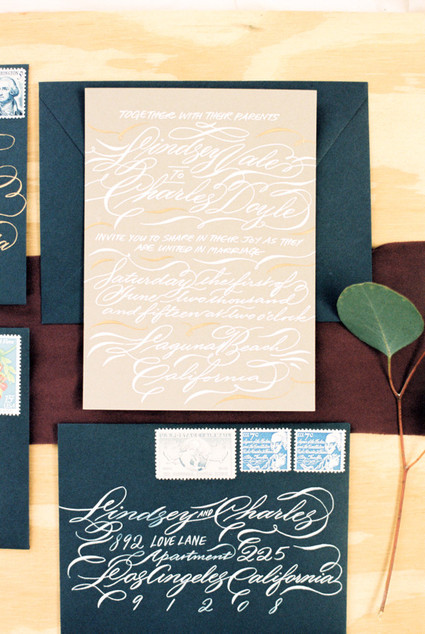 TOGETHER WITH THEIR PARENTS
Lindsey Vale
To
Charles Doyle
INVITE YOU TO SHARE IN THEIR JOY AS THEY
ARE UNITED IN MARRIAGE
Saturday the first of
June two thousand
and fifteen at two o'clock
Laguna Beach
California
Lindsey AND Charles
892 LOVE LANE
Apartment 225
Los Angeles California
9 1 2 0 8